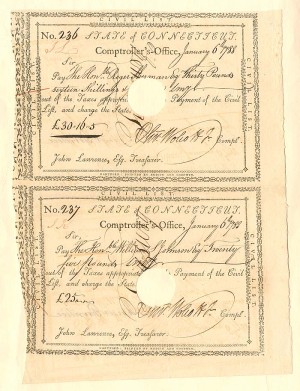 CIVIL LIST
No. 236 STATE of CONNECTICUT.
Comptroller's-Office, January 6th 1788
Sir
Pay The Honble Roger Sherman Thirty Pounds
sixteen Shillings &
out of the Taxes appropriated Payment of the Civil
List, and charge the State.
£30-16-5
Oliv. Wolcott Jr. Compt.
John Lawrence, Esq. Treasurer.
CIVIL LIST
No. 237 STATE of CONNECTICUT.
Comptroller's-Office, January 6th 1788
Sir
Pay The Honble William S Johnson Twenty
five Pounds
out of the Taxes appropriated Payment of the Civil
List, and charge the State.
£25
Oliv. Wolcott Jr. Compt.
John Lawrence, Esq. Treasurer.